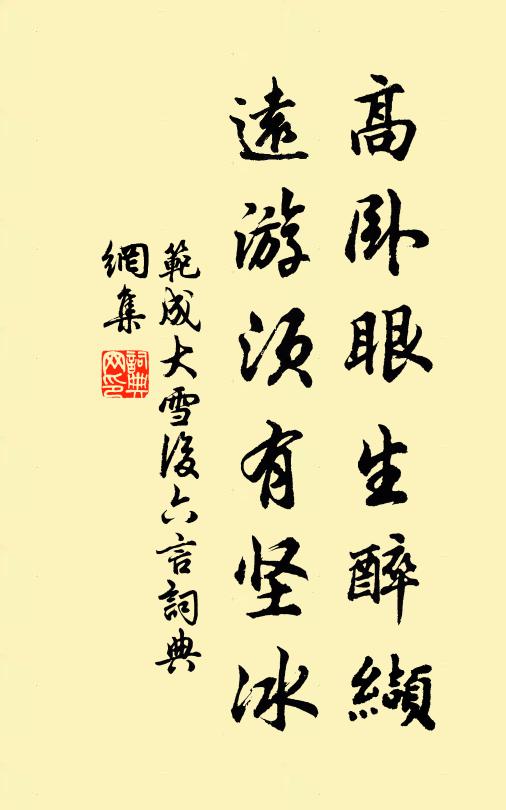 高卧眼生醉纈
遠游须有坚冰
範成大雪後六言詞典
網集
詞典
网印